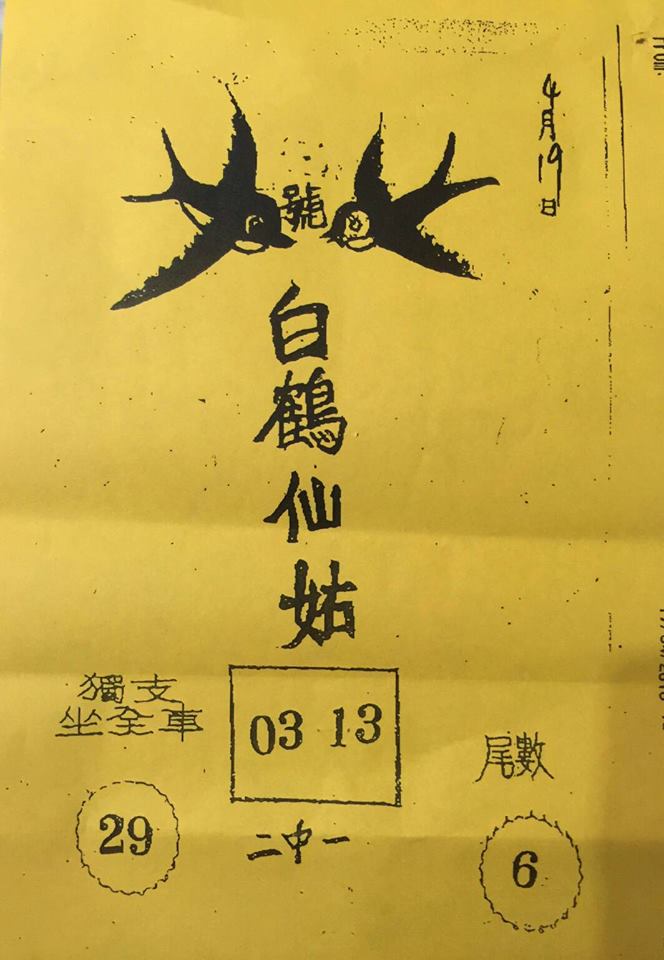 4月19日
號
白鶴仙姑
獨支
坐全車
03 13
尾數
29
二中一
6